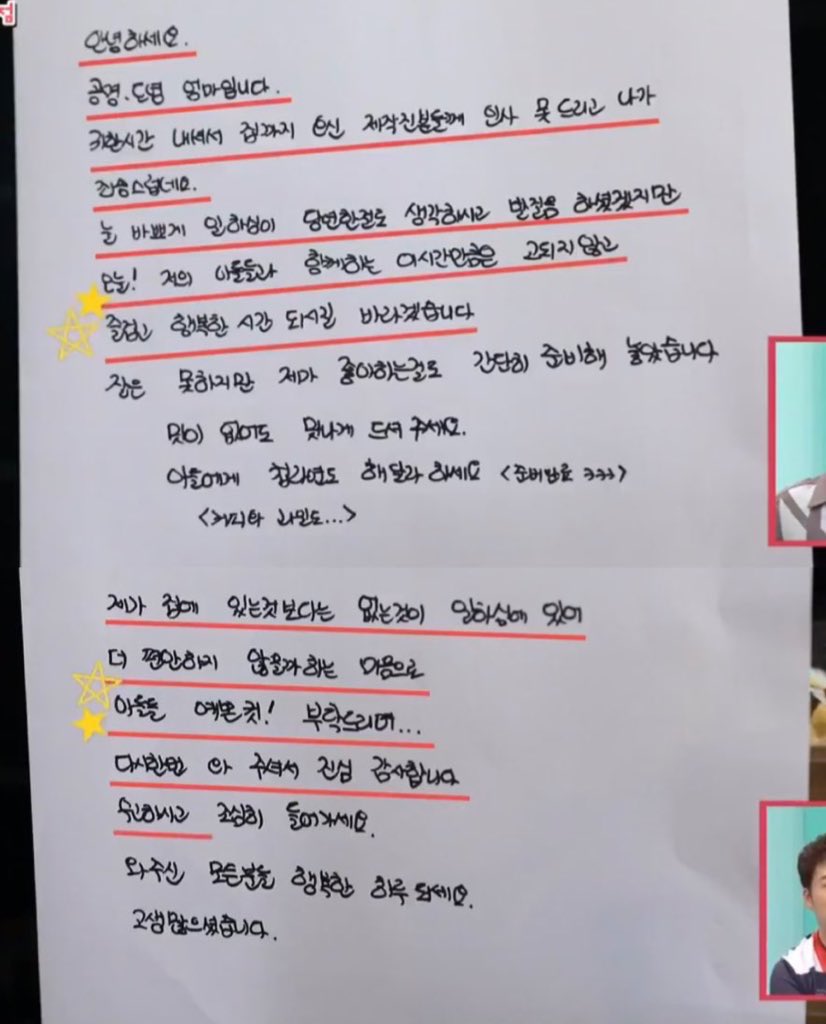 점
안녕하세요.
공명. 도영 엄마입니다.
귀한시간 내셔서 집까지 오신 제작진분들께 인사 못 드리고 나가
죄송스럽네요.
늘 바쁘게 일하심이 당연한걸로 생각하시고 발걸음 하셨겠지만
오늘! 저의 아들들과 함께하는 이시간만큼은 고되지 않고
즐겁고 행복한 시간 되시길 바라겠습니다
잘은 못하지만 제가 좋아하는걸로 간단히 준비해 놓았습니다
맛이 없어도 맛나게 드셔 주세요.
아들에게 짐라면도 해달라 하세요 <준비완료 ㅋㅋㅋ>
<커피와 라면도...>
제가 집에 있는것보다는 없는것이 일하심에 있어
더 편안하지 않을까하는 마음으로
아들들 예쁜컷! 부탁드리며...
다시한번 와 주셔서 진심 감사합니다
수고하시고 조심히 들어가세요.
와주신 모든분들 행복한 하루 되세요.
고생많으셨습니다.